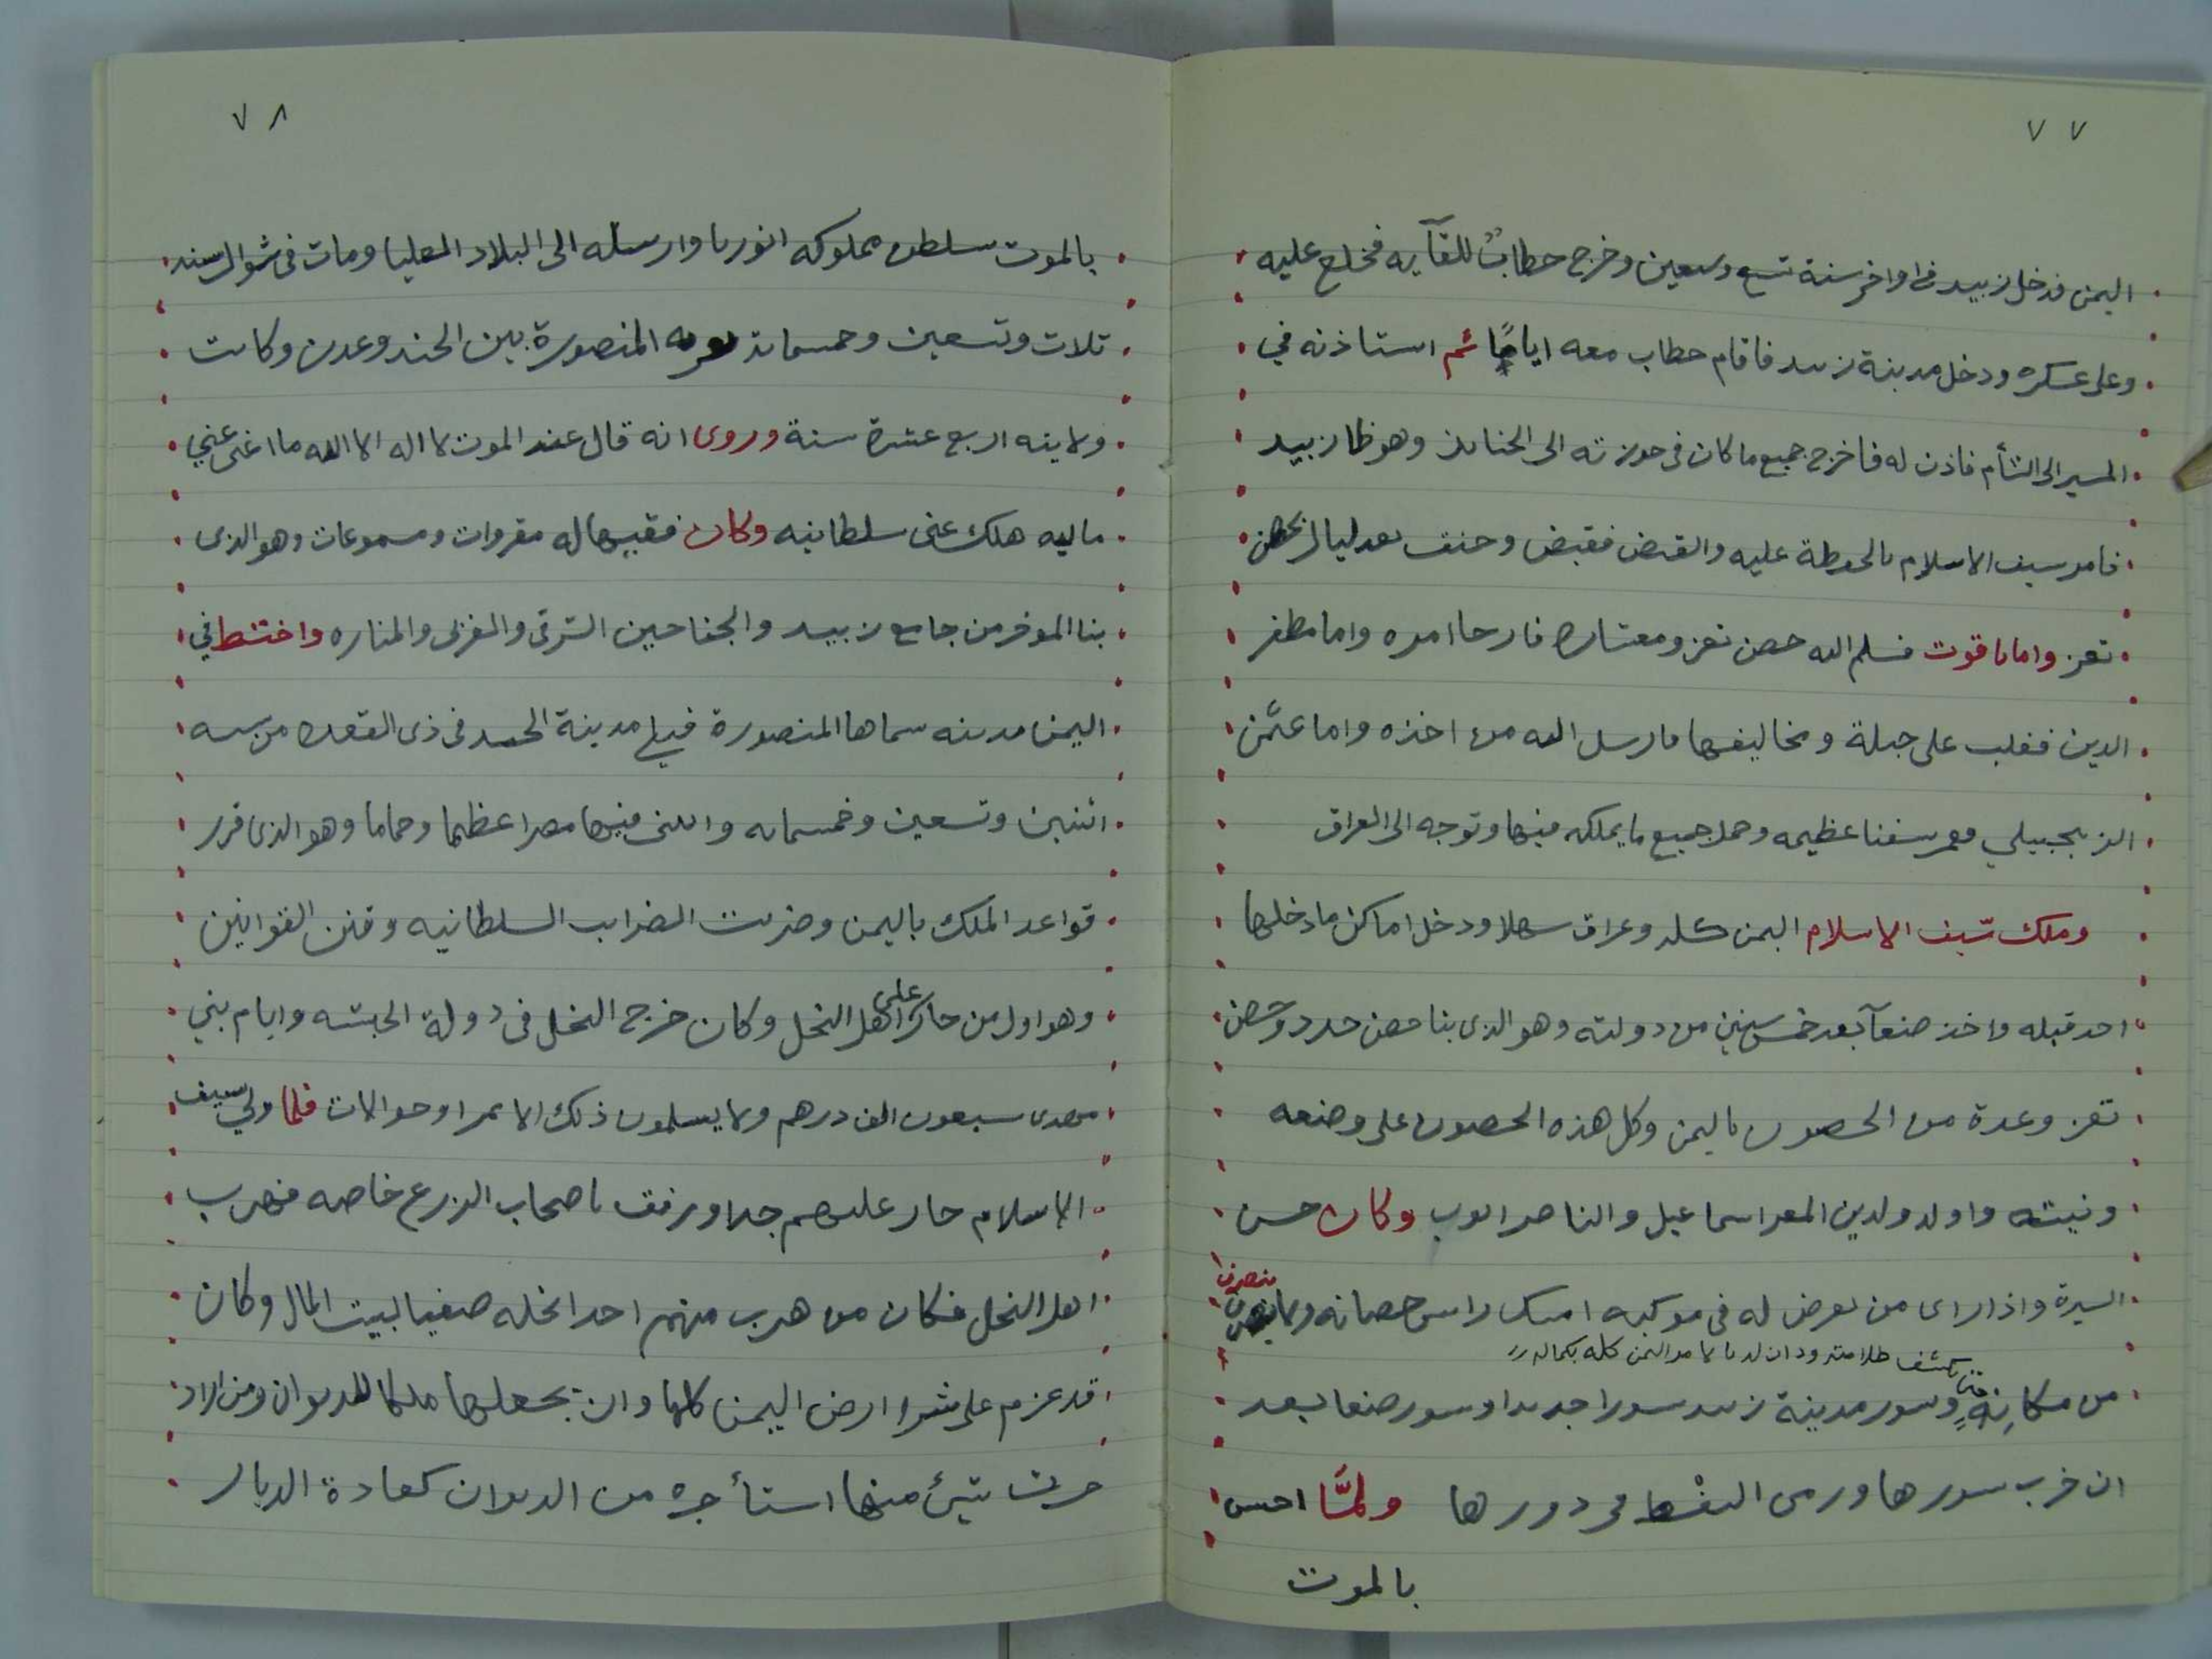 ٧٧
اليمن فدخل زبيد في اواخر سنة تسع وسبعين وخرج حطابٌ للقآيه فخلع عليه
وعلى عسكره ودخل مدينة زبيد فاقام حطاب معه اياماً ثم استاذنه في
المسير الى الشأم فاذن له فاخرج جميع ما كان في حوزته الى الجنابذ وهو ظا زبيد
فامر سيف الاسلام بالحوطة عليه والقبض فقبض وخنق بعد ليال بحصن
تعز واما ياقوت فسلم اليه حصن تعز ومعشاره فارجا امره واما مظفر
الدين فغلب على جبلة ومخاليفها فارسل اليه من اخذه واما عثمن
الزنجبيلي فعمر سفنا عظيمه وحمل جميع ما يملكه فيها وتوجه الى العراق
وملك سيف الاسلام اليمن كله وعراق سهلا ودخل اماكن ما دخلها
احد قبله واخذ صنعآ بعد خمس سنين من دولته وهو الذى بنا حصن حدد وحصن
تعز وعدة من الحصون باليمن وكل هذه الحصون على وضعه
ونيته واولد ولدين المعز اسماعيل والناصر ايوب وكان حسن
السيرة واذا راى من يعرض له في موكبه امسك راس حصانه ولا ينصرف
منصرفا
من مكانه حتى يكشف ظلامته ودان له اليمن كله بكماله وسور مدينة زبيد سورا جديدا وسور صنعا بعد
ان خرب سورها ورمى النفط في دورها ولمَّا احس
بالموت
٧٨
بالموت سلطن مملوكه انوربا وارسله الى البلاد العليا ومات في شوال سنه
ثلاث وتسعين وخمسمائة المنصورة بين الجند وعدن وكانت
ولايته اربع عشرة سنة وروى انه قال عند الموت لا اله الا الله ما اغنى عني
ماليه هلك عنى سلطانيه وكان فقيها له مقروات ومسموعات وهو الذى
بنا الموخر من جامع زبيد والجناحين الشرقى والغربى والمناره واختط في
اليمن مدينه سماها المنصورة قبلي مدينة الجند في ذى القعده من سنه
اثنين وتسعين وخمسمائه وابتنى فيها مصرا عظيما وحماما وهو الذى قرر
قواعد الملك باليمن وضربت الضرايب السلطانيه وقنن القوانين
وهو اول من جار على اهل النخل وكان خرج النخل في دولة الحبشه وايام بني
مهدى سبعون الف درهم ولا يسلمون ذلك الا تمرا وحوالات فلما ولي سيف
الاسلام جار عليهم جدا ورفق باصحاب الزرع خاصه فهرب
اهل النخل فكان من هرب منهم اخذ نخله صفيا لبيت المال وكان
قد عزم على شرا ارض اليمن كلها وان يجعلها ملكا للديوان ومن اراد
حرث شيئ منها استأجره من الديوان كعادة الديار